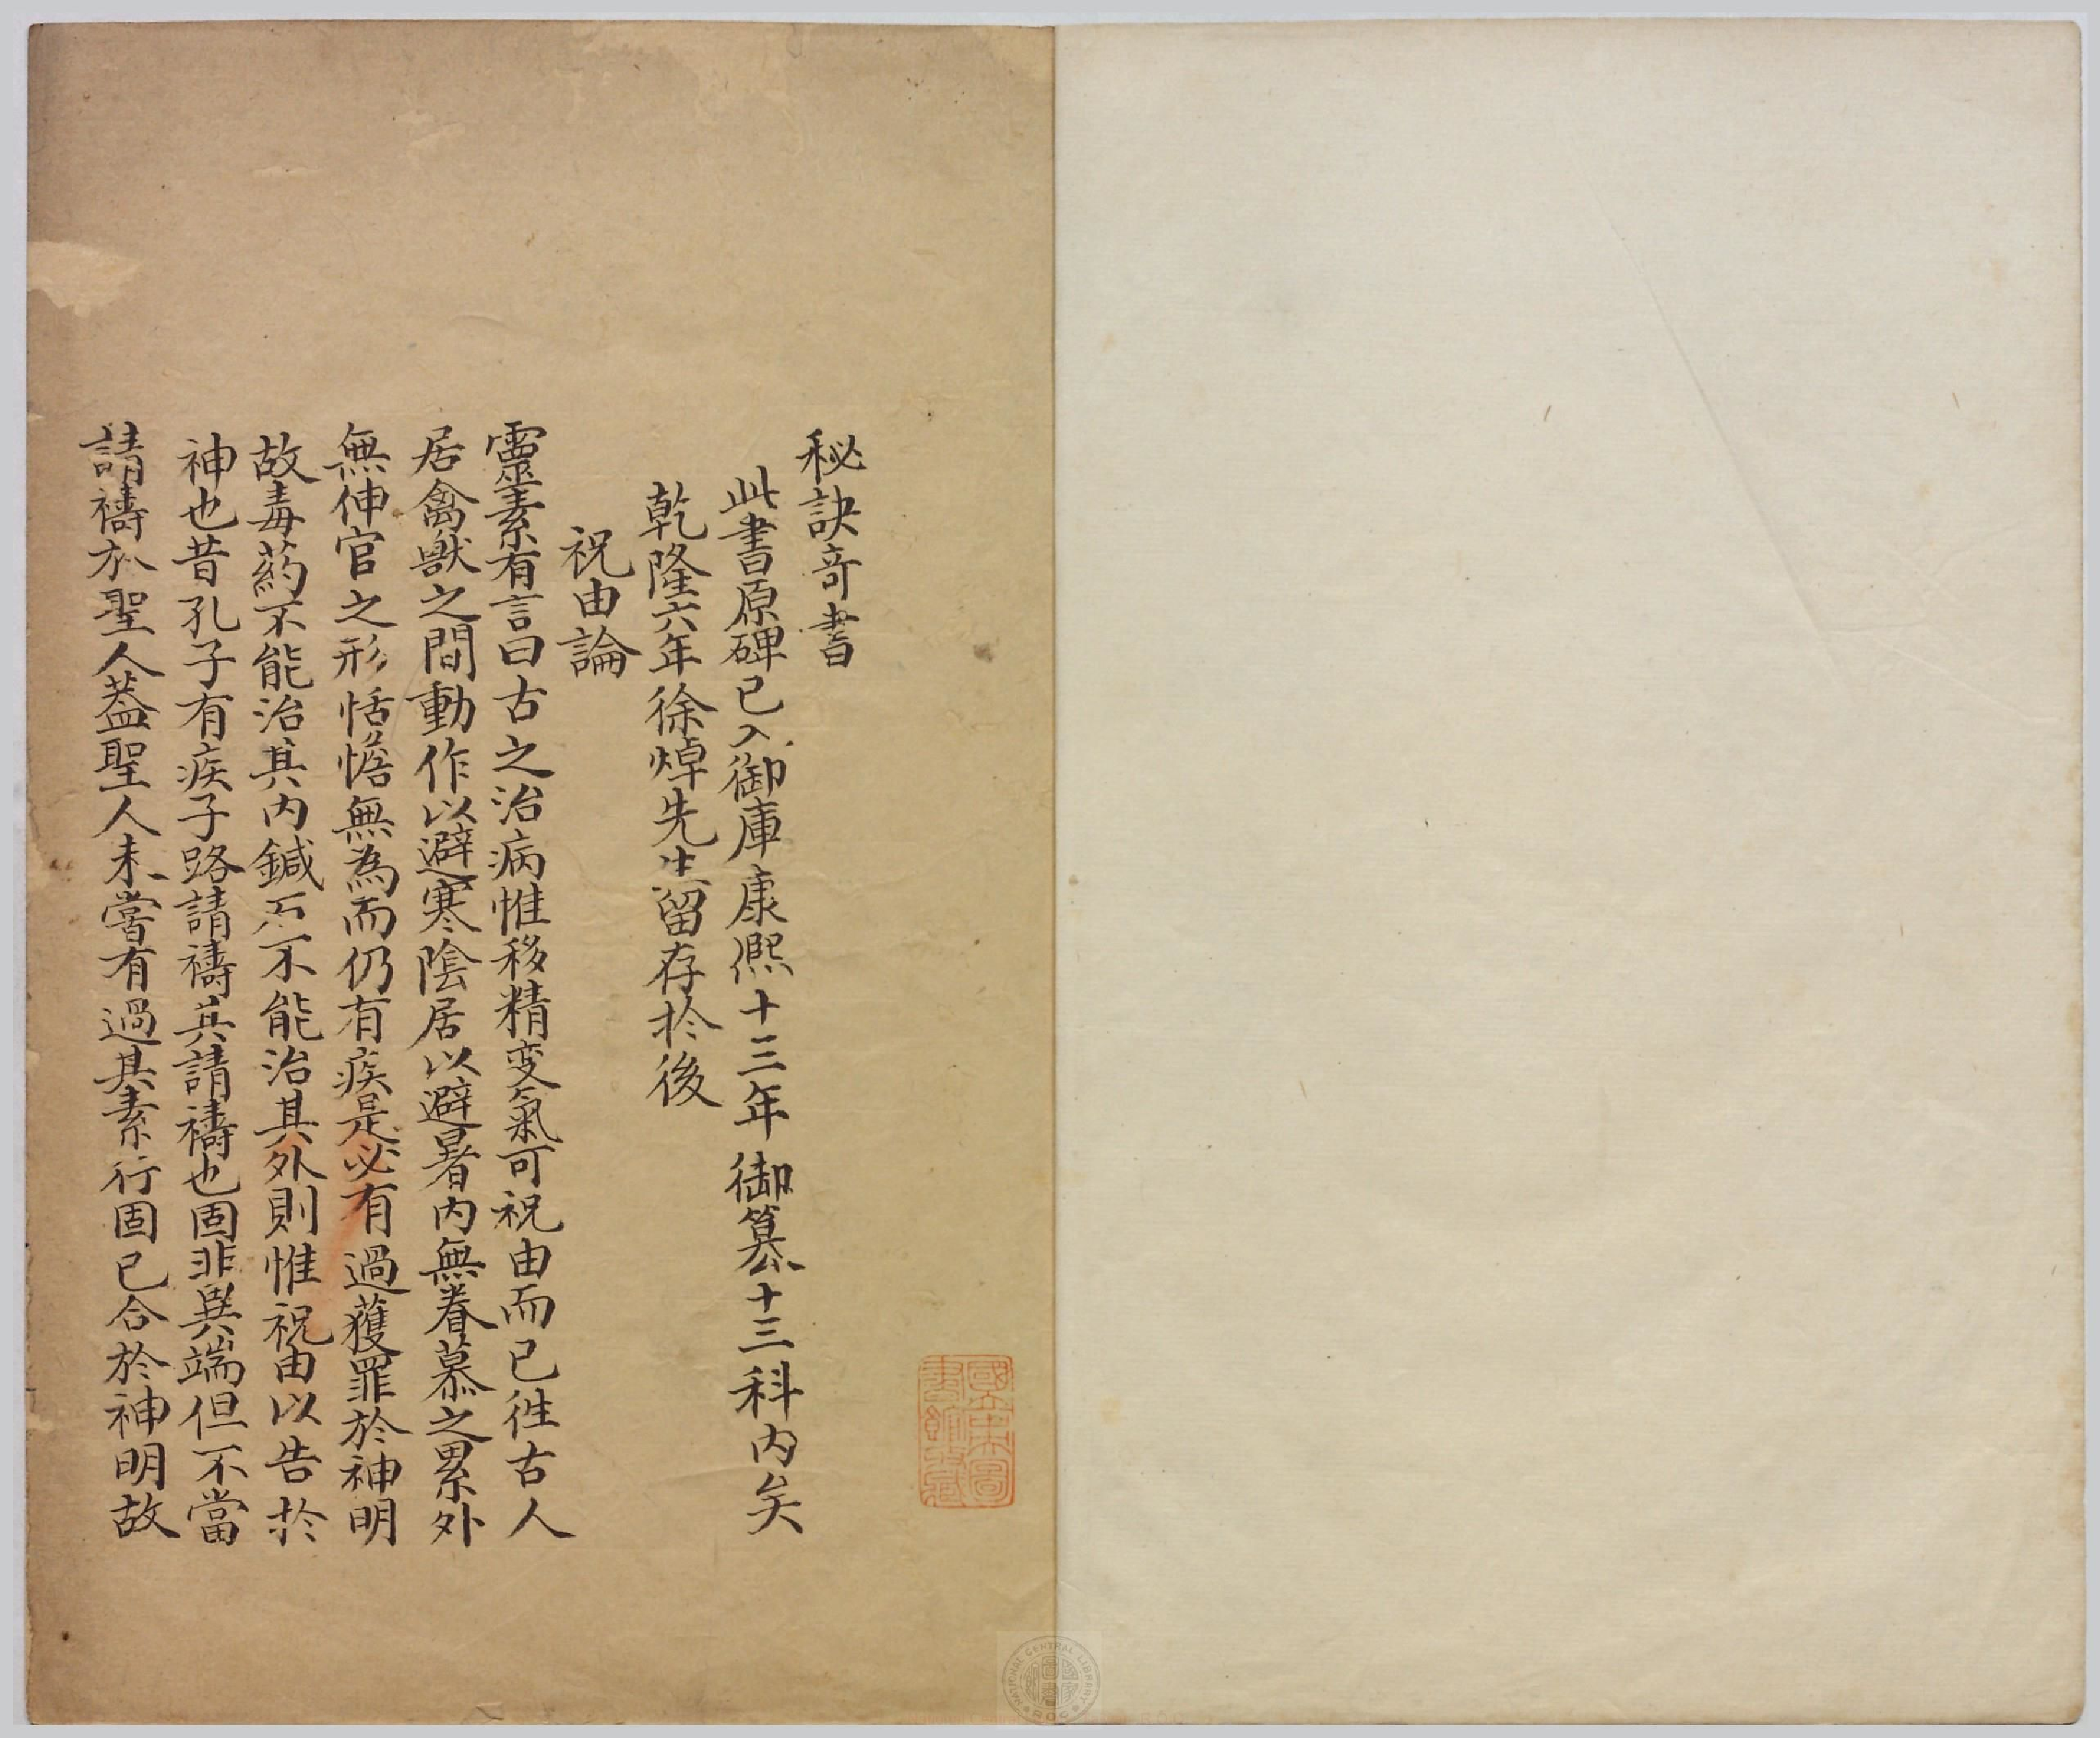 秘訣奇書
此書原碑已入御庫康熙十三年御纂十三科內矣
乾隆六年徐焯先生留存於後
祝由論
靈素有言曰古之治病惟移精变氣可祝由而已徃古人
居禽獸之間動作以避寒陰居以避暑內無眷慕之累外
無伸官之形恬憺無為而仍有疾是必有過獲罪於神明
故毒葯不能治其內鍼石不能治其外則惟祝由以告於
神也昔孔子有疾子路請禱其請禱也固非異端但不當
請禱於聖人蓋聖人未嘗有過其素行固已合於神明故
國立中央圖書館藏
NATIONAL CENTRAL LIBRARY
R.O.C.